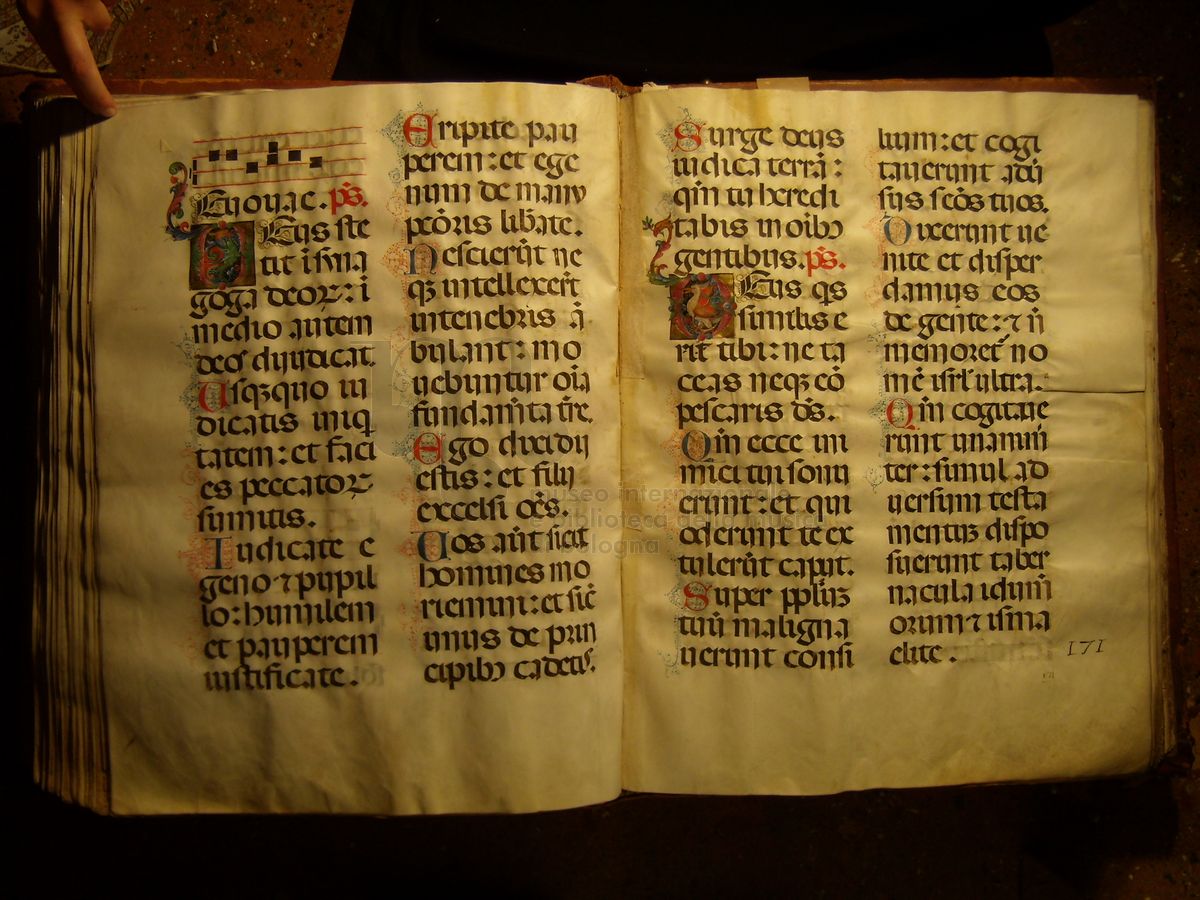 Euouae. ps.
Deus ste
tit ī syna
goga deoꝝ: ī
medio autem
deos dijudicat.
Usqꝫquo iu
dicatis iniq
tatem: et faci
es peccatoꝝ
sumitis.
Iudicate e
geno ⁊ pupil
lo: humilem
et pauperem
iustificate.
Eripite pau
perem: et ege
num de manu
pctōris libate.
Nescierūt ne
qꝫ intellexert̄
in tenebris ā
bulant: mo
uebuntur oīa
fundam̄ta tr̄e.
Ego dixi dij
estis: et filij
excelsi oēs.
Uos aūt sicut
homines mo
riemini: et sic̄
unus de prin
cipibꝫ cadetis.
Surge deus
iudica terrā:
qm̄ tu heredi
tabis in oībꝫ
gentibus. ps.
Deus qs
similis e
rit tibi: ne ta
ceas neqꝫ cō
pescaris ds̄.
Qm̄ ecce ini
mici tui sonu
erunt: et qui
oderunt te ex
tulerūt caput.
Super pplūꝫ
tuū maligna
uerunt consi
lium: et cogi
tauerunt adū
sus scōs tuos.
Dixerunt ue
nite et disper
damus eos
de gente: ⁊ n̄
memoret̄ no
mē isrl̄ ultra.
Qm̄ cogitaue
runt unanim̄
ter: simul ad
uersum testa
mentuꝫ dispo
suerunt taber
nacula idum̄
orum ⁊ isma
elite.
171
museo internaz
e biblioteca della musica
di bologna